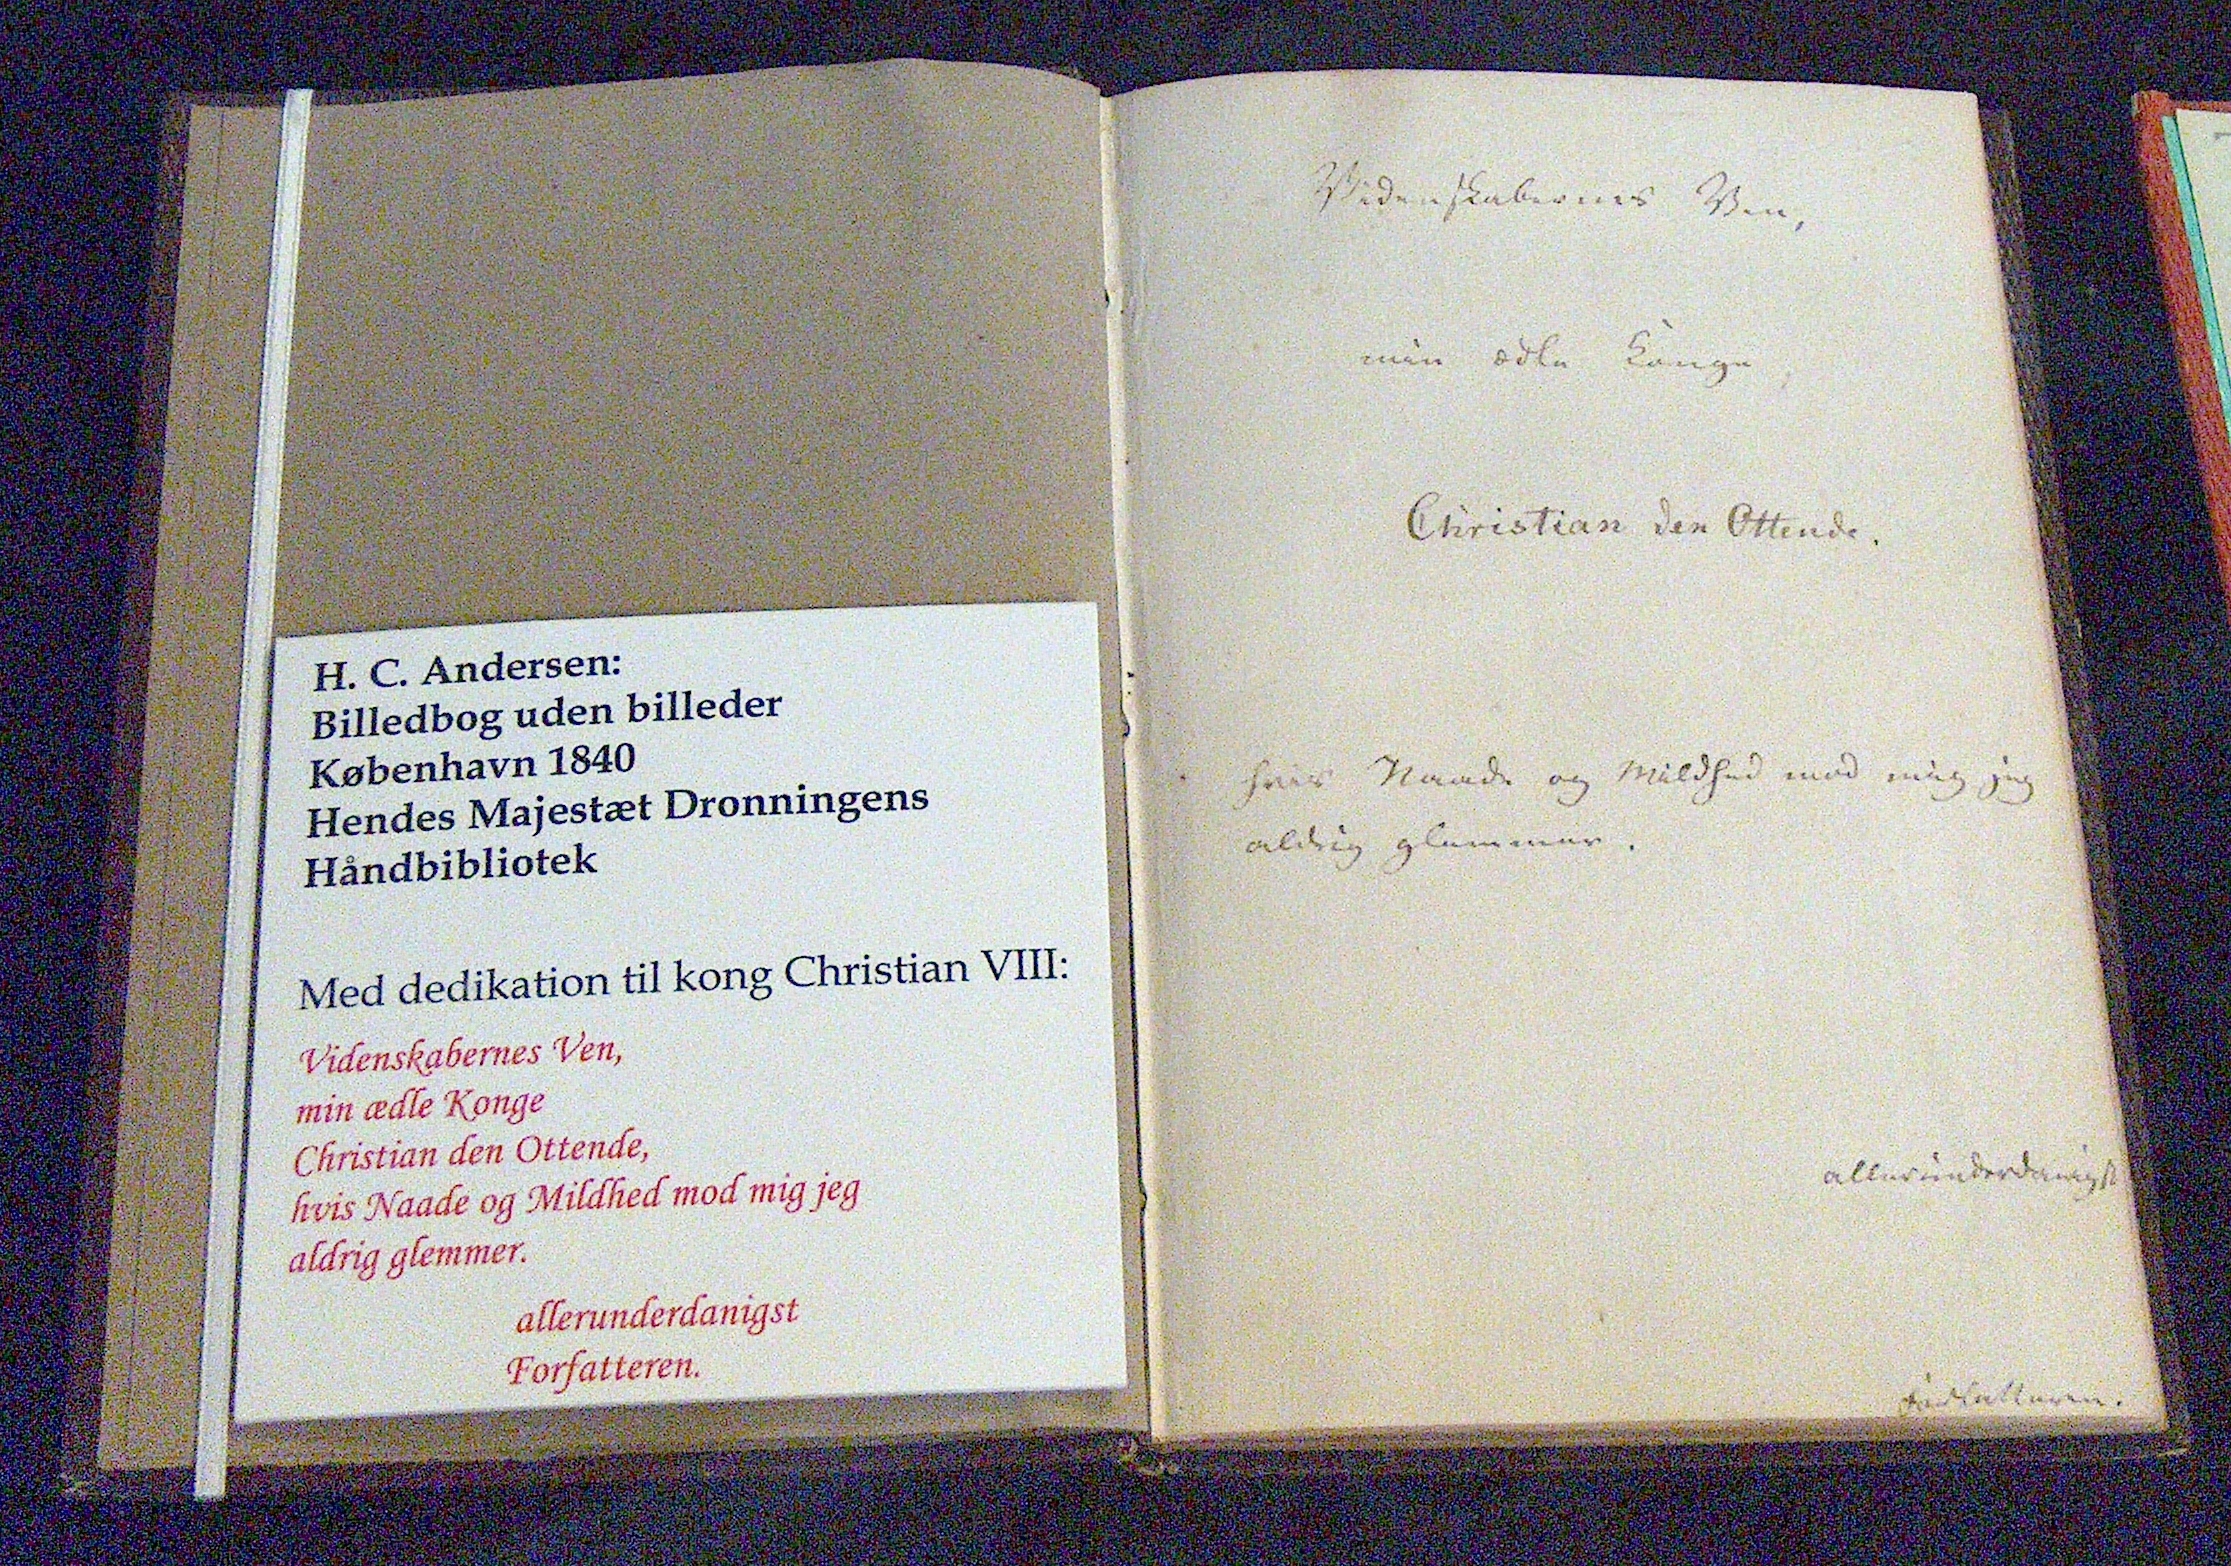 H. C. Andersen:
Billedbog uden billeder
København 1840
Hendes Majestæt Dronningens
Håndbibliotek
Med dedikation til kong Christian VIII:
Videnskabernes Ven,
min ædle Konge
Christian den Ottende,
hvis Naade og Mildhed mod mig jeg
aldrig glemmer.
allerunderdanigst
Forfatteren.
Videnskabernes Ven,
min ædle Konge
Christian den Ottende.
hvis Naade og Mildhed mod mig jeg
aldrig glemmer.
allerunderdanigst
Forfatteren.